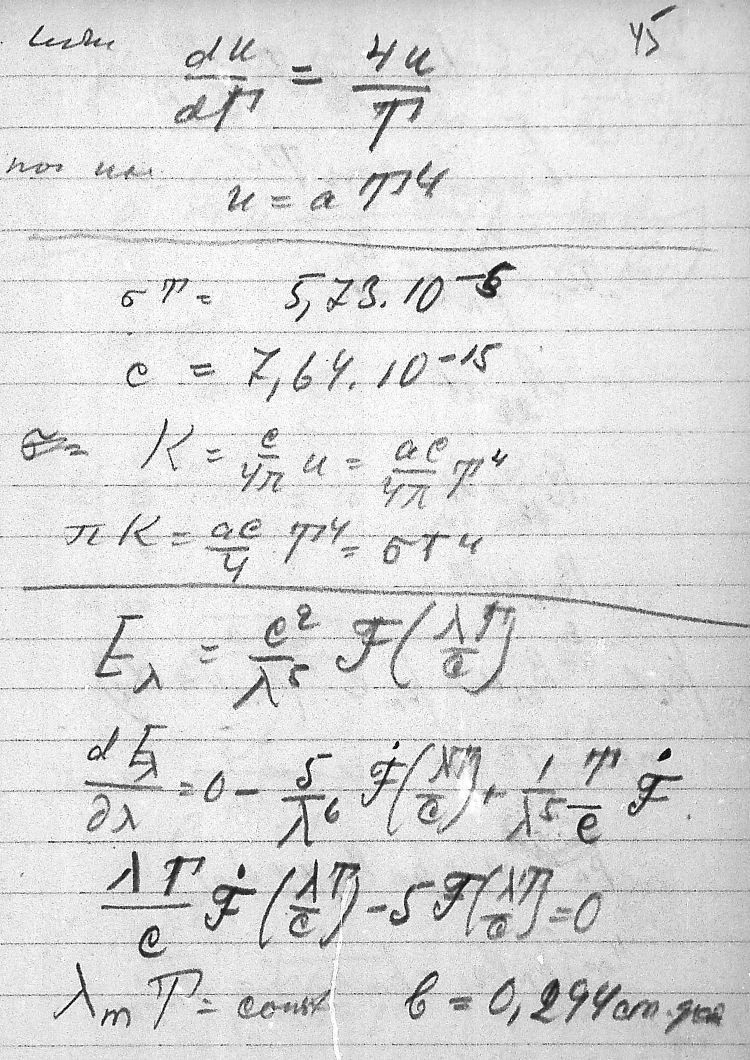 или 45
du/dT = 4u/T
u = aT⁴
σT = 5,73.10⁻⁵
c = 7,64.10⁻¹⁵
K = c/4π u = ac/4π T⁴
πK = ac/4 T⁴ = σT⁴
E_λ = c²/λ⁵ F(λT/c)
dE_λ/∂λ = 0 - 5/λ⁶ Ḟ(λT/c) + 1/λ⁵ T/c Ḟ.
λT/c Ḟ(λT/c) - 5F(λT/c) = 0
λₘT = const b = 0,294 cm.